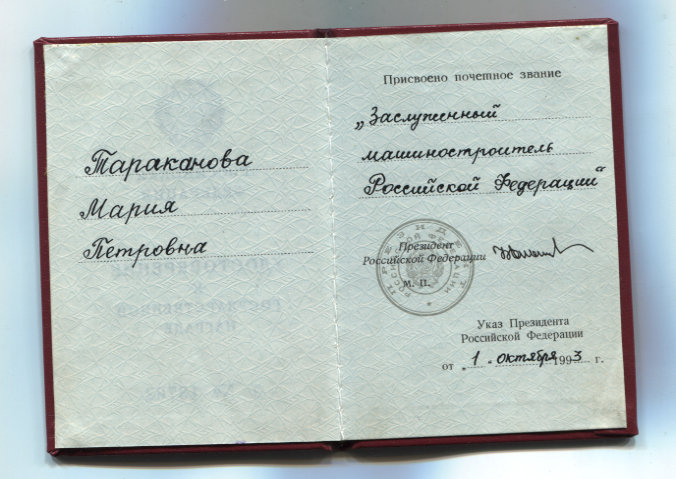 Тараканова
Мария
Петровна
Присвоено почетное звание
„Заслуженный
машиностроитель
Российской Федерации“
Президент
Российской Федерации
М. П.
Указ Президента
Российской Федерации
от „1„ октября 1993 г.